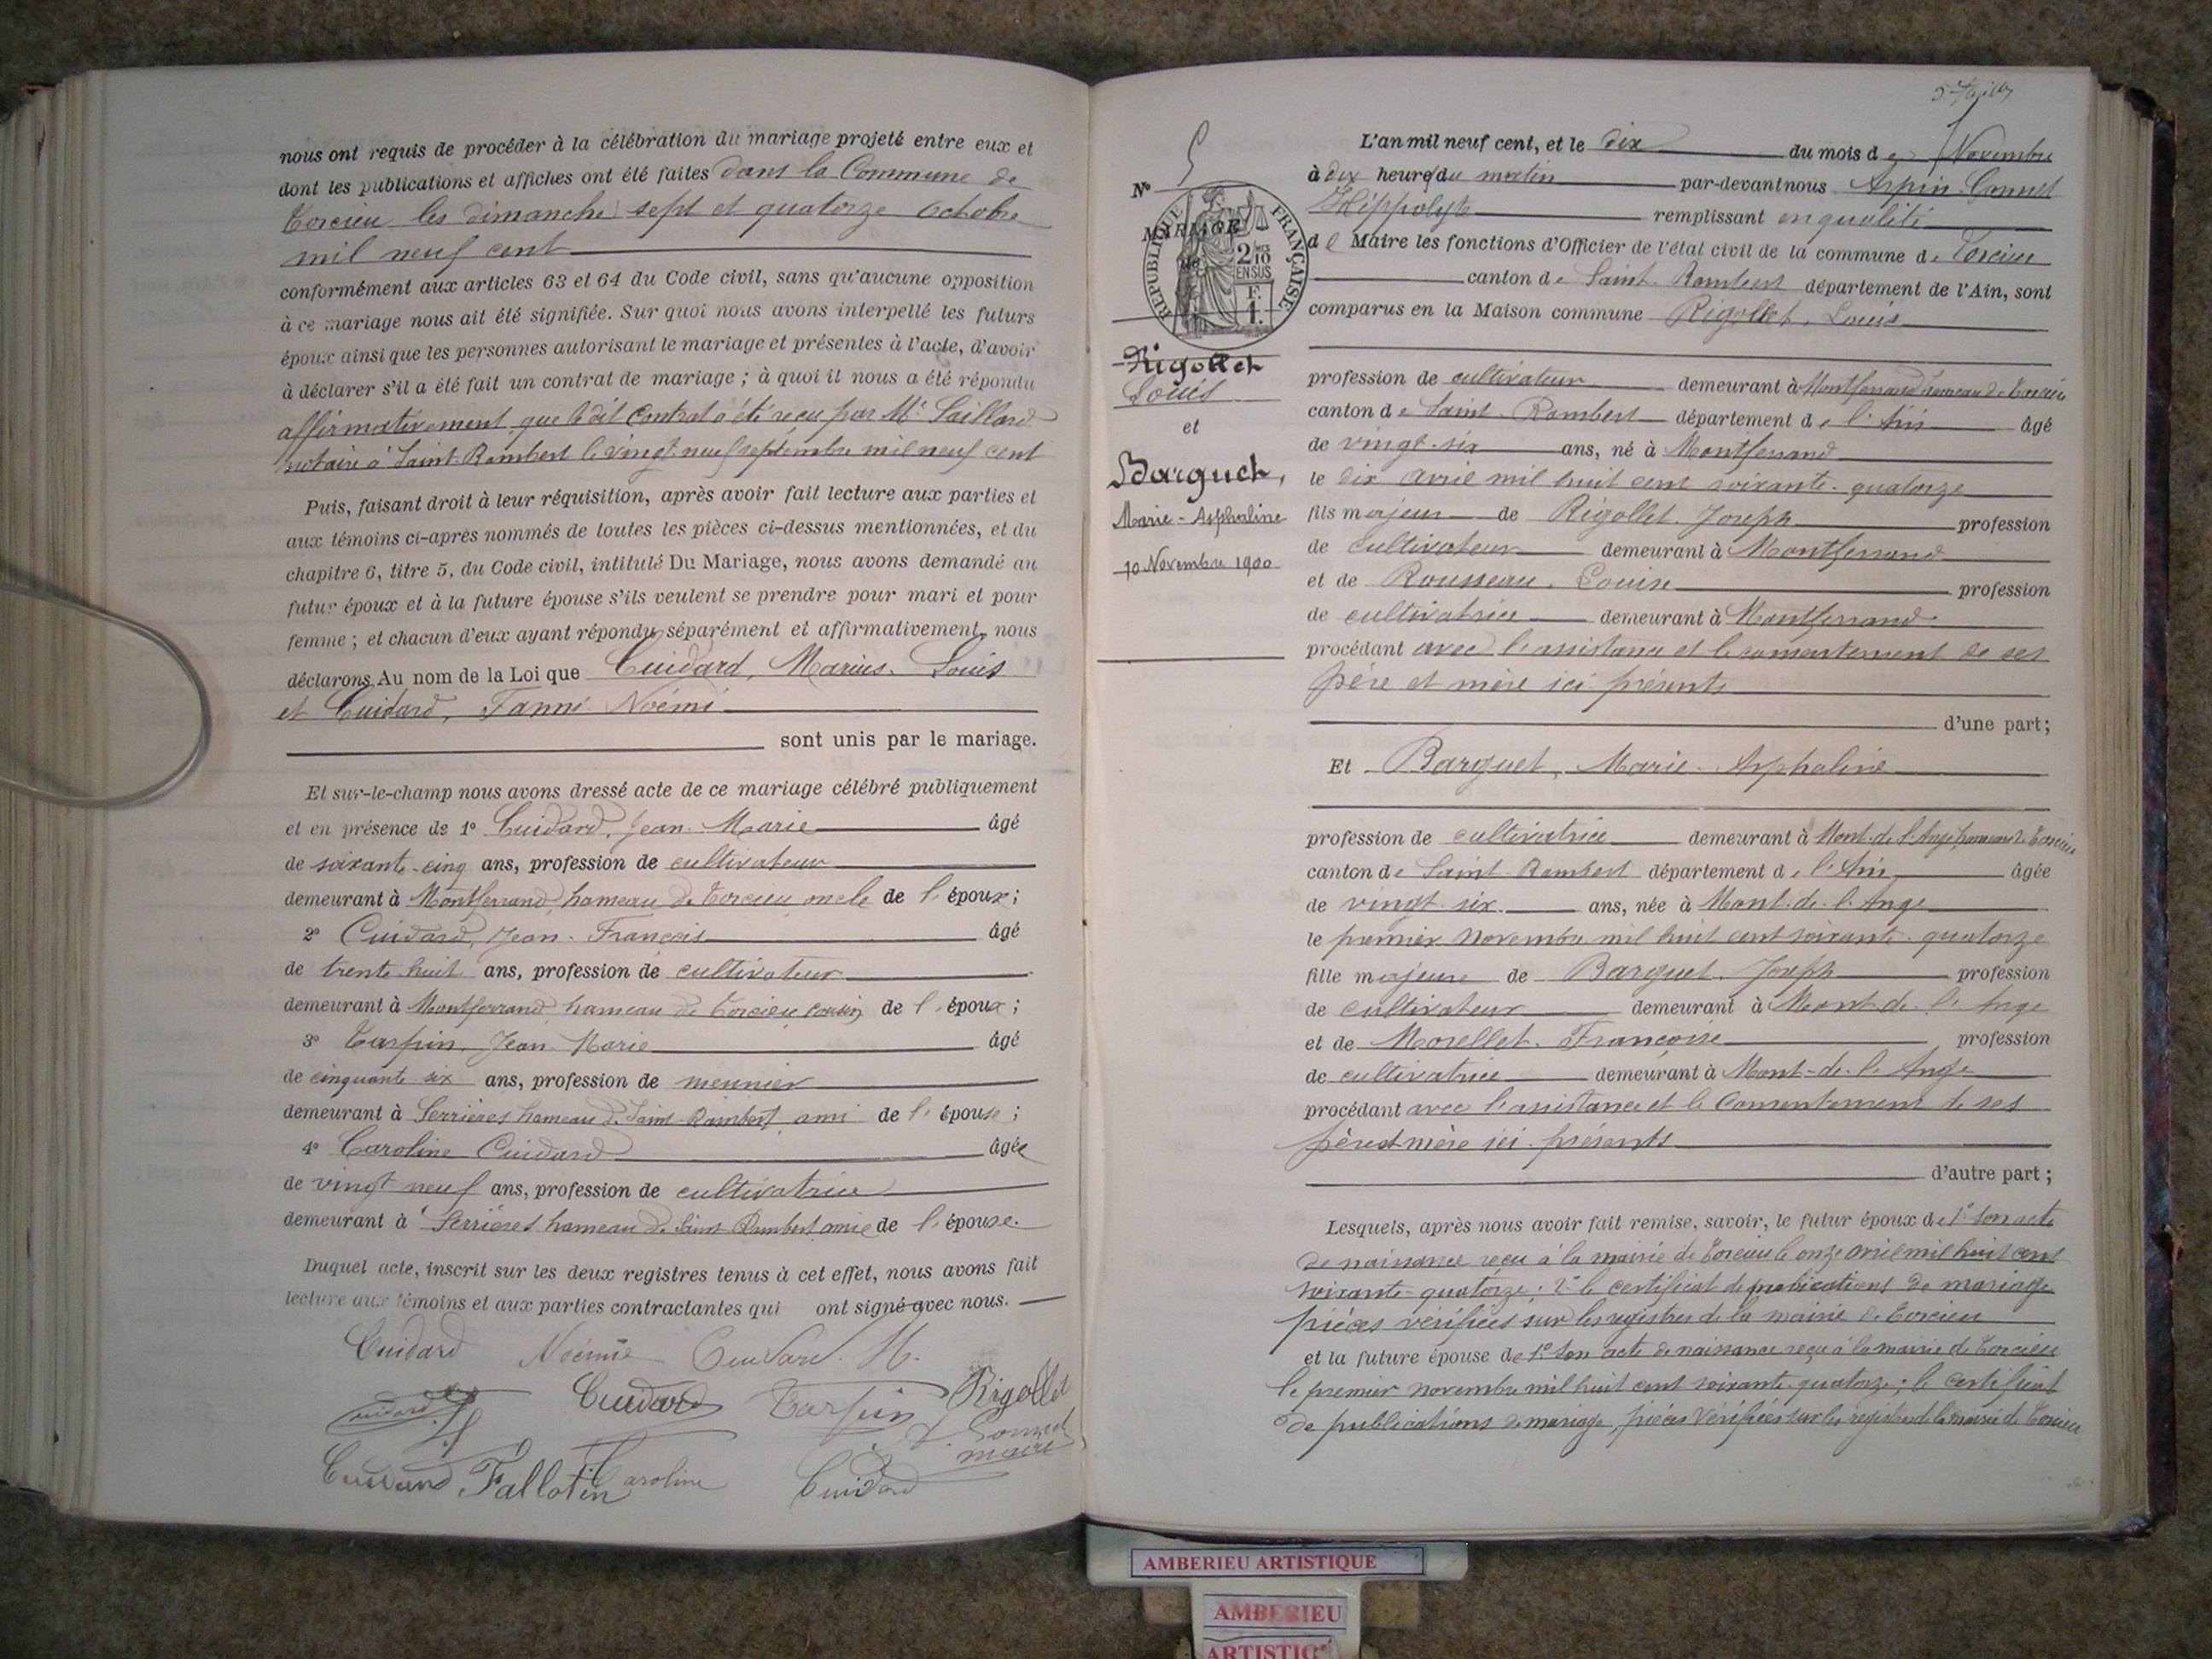 nous ont requis de procéder à la célébration du mariage projeté entre eux et
dont les publications et affiches ont été faites dans la Commune de
Torcieu les dimanche sept et quatorze octobre
mil neuf cent
conformément aux articles 63 et 64 du Code civil, sans qu'aucune opposition
à ce mariage nous ait été signifiée. Sur quoi nous avons interpellé les futurs
époux ainsi que les personnes autorisant le mariage et présentes à l'acte, d'avoir
à déclarer s'il a été fait un contrat de mariage ; à quoi il nous a été répondu
affirmativement que ledit Contrat a été reçu par Me Saillard
notaire à Saint-Rambert le vingt neuf septembre mil neuf cent
Puis, faisant droit à leur réquisition, après avoir fait lecture aux parties et
aux témoins ci-après nommés de toutes les pièces ci-dessus mentionnées, et du
chapitre 6, titre 5, du Code civil, intitulé Du Mariage, nous avons demandé au
futur époux et à la future épouse s'ils veulent se prendre pour mari et pour
femme ; et chacun d'eux ayant répondu séparément et affirmativement, nous
déclarons Au nom de la Loi que Cuidard, Marius. Louis
et Cuidard, Fanni Noémi
sont unis par le mariage.
Et sur-le-champ nous avons dressé acte de ce mariage célébré publiquement
et en présence de 1° Cuidard, Jean. Marie âgé
de soixante-cinq ans, profession de cultivateur
demeurant à Montferrand, hameau de Torcieu oncle de l'époux ;
2° Cuidard, Jean. François âgé
de trente huit ans, profession de cultivateur
demeurant à Montferrand hameau de Torcieu cousin de l'époux ;
3° Tarpin, Jean Marie âgé
de cinquante six ans, profession de meunier
demeurant à Serrières hameau de Saint-Rambert ami de l'épouse ;
4° Caroline Cuidard âgée
de vingt neuf ans, profession de cultivatrice
demeurant à Serrières hameau de Saint Rambert amie de l'épouse.
Duquel acte, inscrit sur les deux registres tenus à cet effet, nous avons fait
lecture aux témoins et aux parties contractantes qui ont signé avec nous.
Cuidard Noémie Cuidard. M.
Cuidard Cuidard Tarpin Rigollet
Gonnet
maire
Cuidard Fallotin Caroline Cuidard
N° 5
MARIAGE
de
RÉPUBLIQUE FRANÇAISE
2/10 EN SUS
F.
1.
Rigollet
Louis
et
Barguet,
Marie-Asphaline
10 Novembre 1900
L'an mil neuf cent, et le dix du mois de Novembre
à dix heures du matin par-devant nous Arpin. Gonnet
Hippolyte remplissant en qualité
de Maire les fonctions d'Officier de l'état civil de la commune de Torcieu
canton de Saint. Rambert département de l'Ain, sont
comparus en la Maison commune Rigollet, Louis
profession de cultivateur demeurant à Montferrand hameau de Torcieu
canton de Saint. Rambert département de l'Ain âgé
de vingt-six ans, né à Montferrand
le dix avril mil huit cent soixante-quatorze
fils majeur de Rigollet. Joseph profession
de cultivateur demeurant à Montferrand
et de Rousseau. Louise profession
de cultivatrice demeurant à Montferrand
procédant avec l'assistance et le consentement de ses
père et mère ici présents
d'une part ;
Et Barguet, Marie. Asphaline
profession de cultivatrice demeurant à Mont-de-l'Ange hameau de Torcieu
canton de Saint Rambert département de l'Ain âgée
de vingt-six ans, née à Mont-de-l'Ange
le premier novembre mil huit cent soixante-quatorze
fille majeure de Barguet. Joseph profession
de cultivateur demeurant à Mont-de-l'Ange
et de Morellet. Françoise profession
de cultivatrice demeurant à Mont-de-l'Ange
procédant avec l'assistance et le Consentement de ses
père et mère ici présents
d'autre part ;
Lesquels, après nous avoir fait remise, savoir, le futur époux de 1° son acte
de naissance reçu à la mairie de Torcieu le onze avril mil huit cent
soixante-quatorze ; 2° le certificat de publications de mariage
pièces vérifiées sur les registres de la mairie de Torcieu
et la future épouse de 1° son acte de naissance reçu à la mairie de Torcieu
le premier novembre mil huit cent soixante-quatorze ; le certificat
de publications de mariage, pièces vérifiées sur les registres de la mairie de Torcieu
AMBERIEU ARTISTIQUE
AMBERIEU
ARTISTIQ